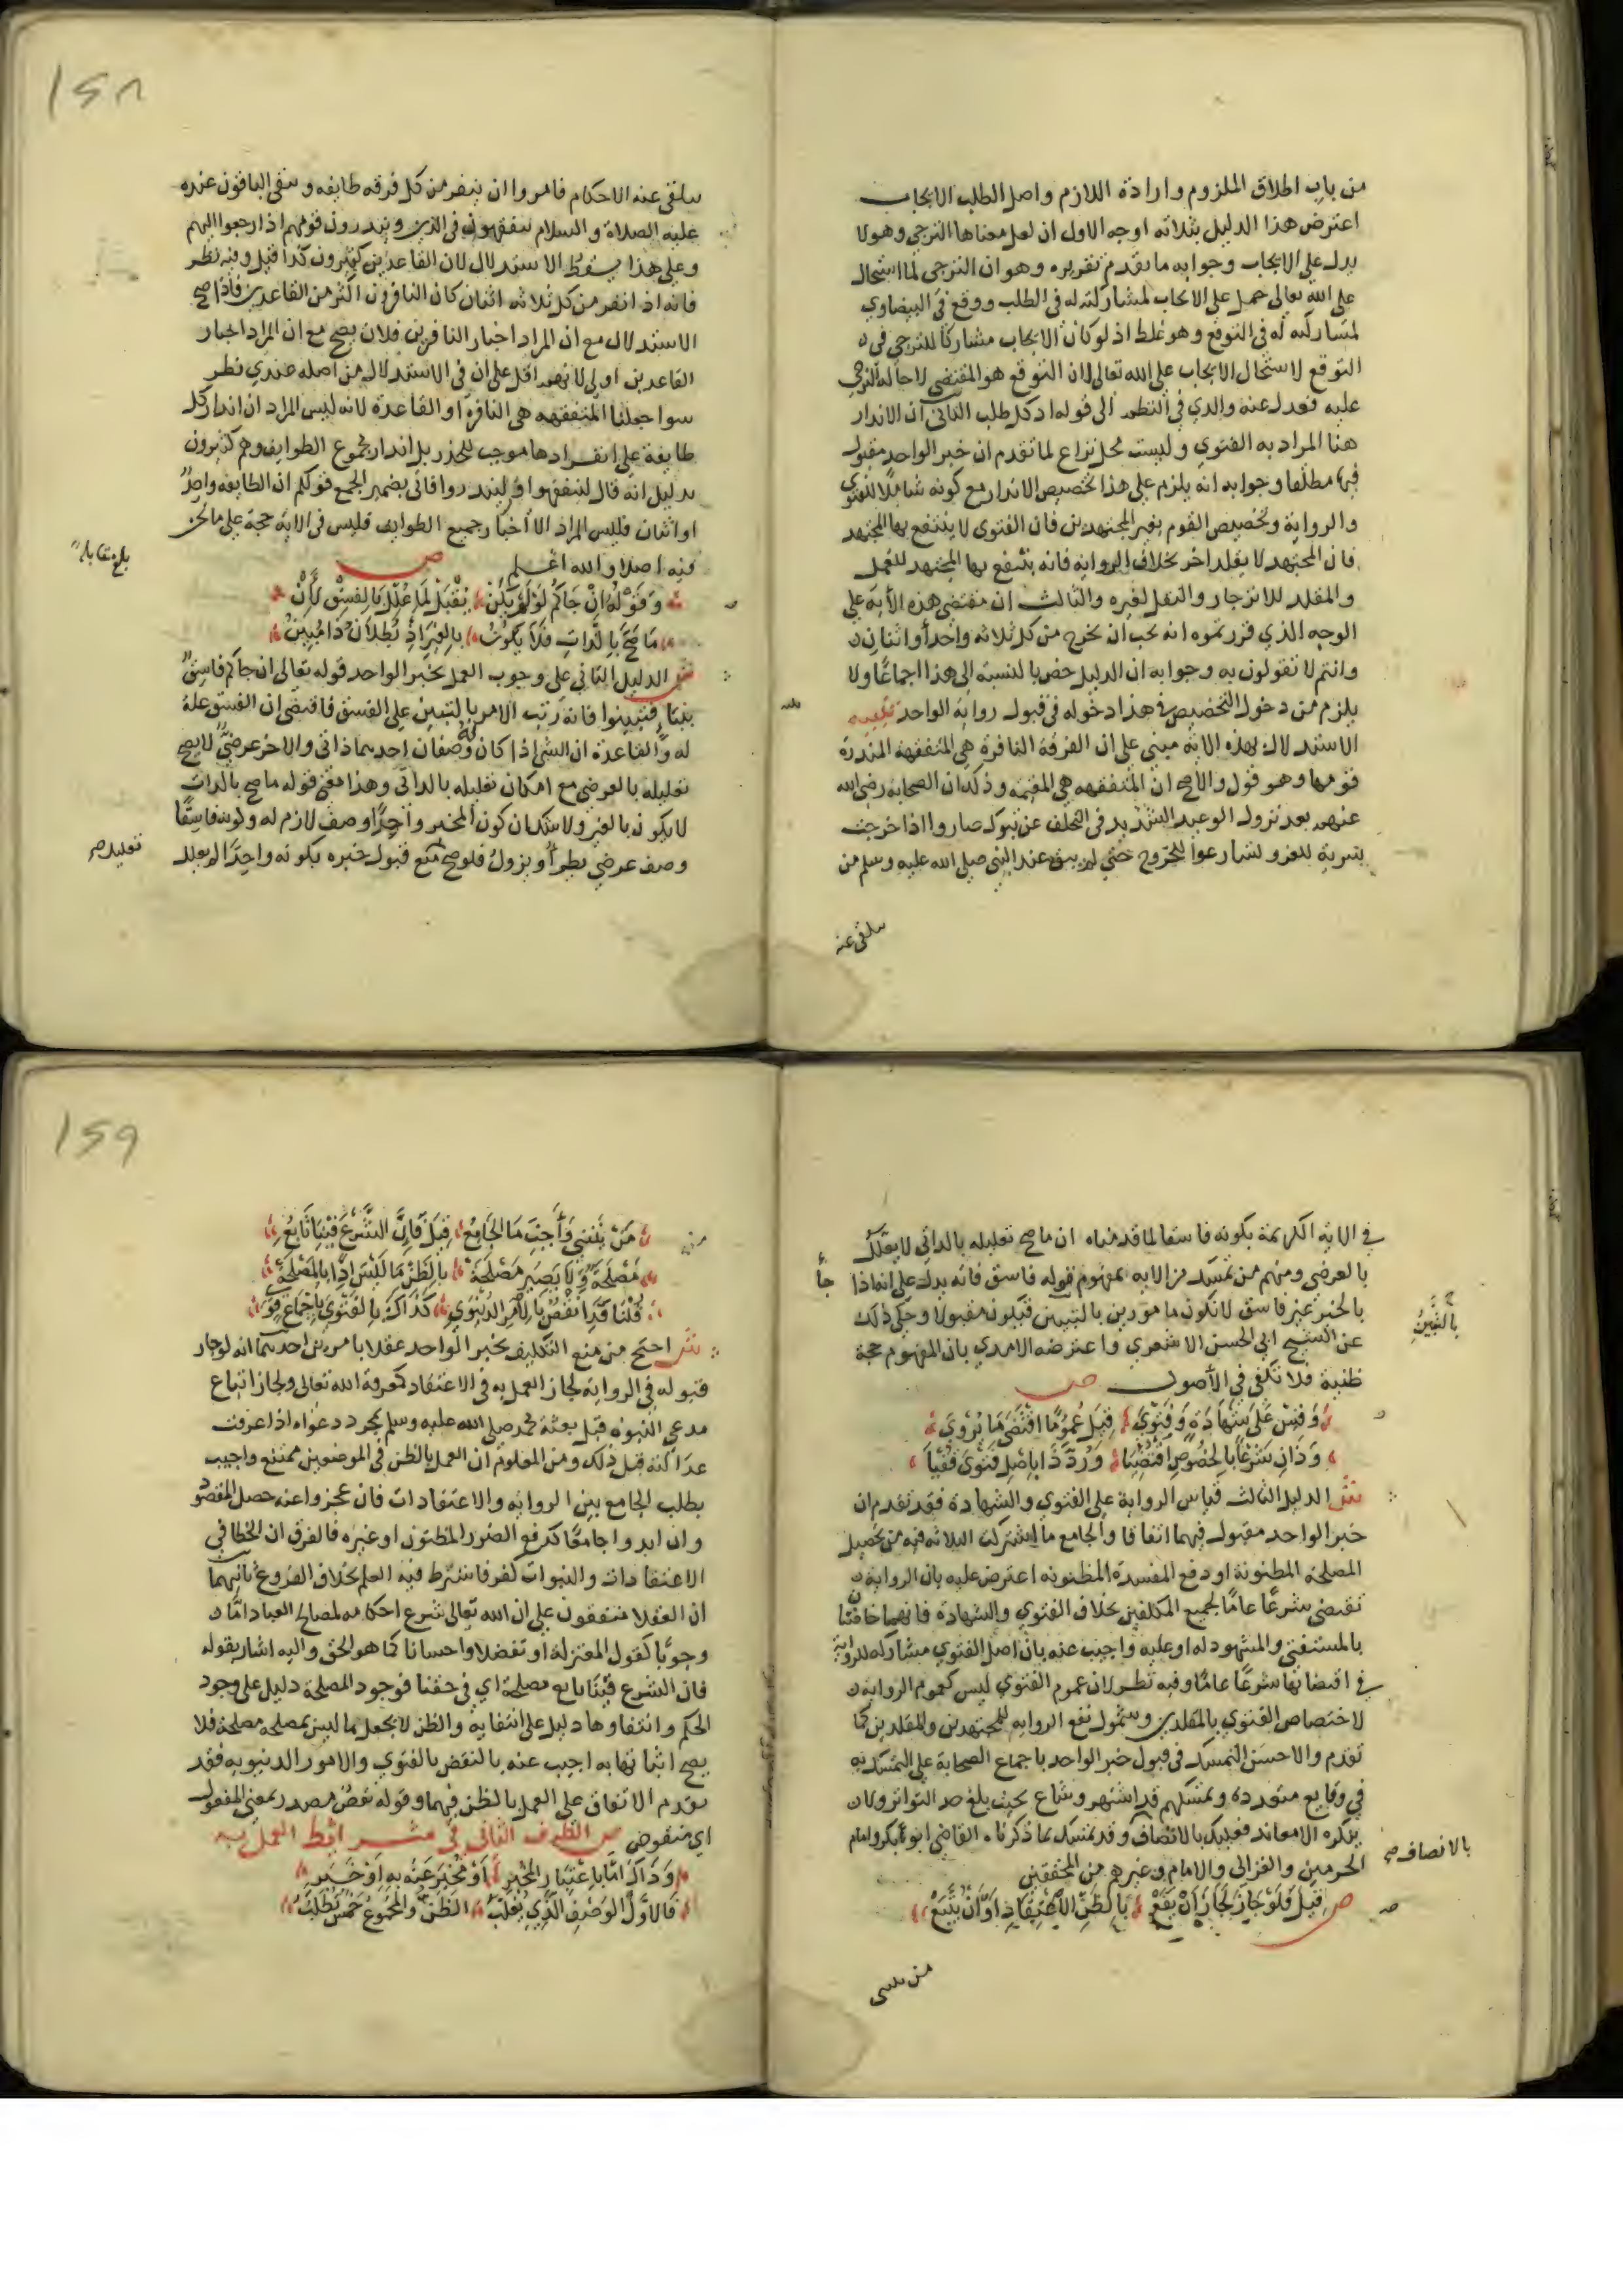 من باب اطلاق الملزوم وارادة اللازم واصل الطلب الايجاب
اعترض هذا الدليل بثلاثه اوجه الاول ان لعل معناها الترجي وهو لا
يدل على الايجاب وجوابه ما تقدم تقريره وهو ان الترجي لما استحال
على الله تعالى حمل على الايجاب لمشاركته له في الطلب ووقع في البيضاوي
لمشاركته له في التوقع وهو غلط اذ لو كان الايجاب مشاركا للترجي في
التوقع لاستحال الايجاب على الله تعالى لان التوقع هو المقتضي لاحالة الترجي
عليه فعدل عنه والدي في النظم الى قوله اذ كل طلب الثاني ان الانذار
هنا المراد به الفتوي وليست محل نزاع لما تقدم ان خبر الواحد مقبول
فيها مطلقا وجوابه انه يلزم على هذا تخصيص الانذار مع كونه شاملا للفتوي
والرواية وتخصيص القوم بغير المجتهدين فان الفتوى لا ينتفع بها المجتهد
فان المجتهد لا يقلد اخر بخلاف الرواية فانه ينتفع بها المجتهد للعمل
والمقلد للانزجار والنقل لغيره والثالث ان مقتضى هذه الاية على
الوجه الذي قررتموه انه يجب ان يخرج من كل ثلاثه واحدا او اثنان
وانتم لا تقولون به وجوابه ان الدليل خص بالنسبة الى هذا اجماعا ولا
يلزم من دخول التخصيص في هذا دخوله في قبول رواية الواحد تنبيه
الاستدلال بهذه الاية مبني على ان الفرقة النافرة هي المتفقهه المنذرة
قومها وهو قول والاصح ان المتفقهه هي المقيمة وذلك ان الصحابة رضي الله
عنهم بعد نزول الوعيد الشديد في التخلف عن تبوك صاروا اذا خرجت
سرية للغزو تسارعوا للخروج حتى لم يبق عند النبي صلى الله عليه وسلم من
يتلقى عنه
١٢٨
يتلقى عنه الاحكام فامروا ان ينفر من كل فرقه طايفه وتبقى الباقون عنده
عليه الصلاة والسلام ليتفقهون في الدين وينذرون قومهم اذا رجعوا اليهم
وعلى هذا يسقط الاستدلال لان القاعدين كثيرون كذا قيل وفيه نظر
فانه اذا نفر من كل ثلاثه اثنان كان النافرون اكثر من القاعدين فاذا صح
الاستدلال مع ان المراد اخبار النافرين فلان يصح مع ان المراد اخبار
القاعدين اولى لانهم اقل على ان في الاستدلال من اصله عندي نظر
سوا جعلنا المتفقهه هي النافرة او القاعدة لانه ليس المراد ان انذار كل
طايفة على انفرادها موجب للحذر بل انذار مجموع الطوايف وهم كثيرون
بدليل انه قال ليتفقهوا ولينذروا فاتى بضمير الجمع فوكلم ان الطايفه واحد
او اثنان فليس المراد الا اخبار جميع الطوايف فليس في الاية حجة على ما نحن
فيه اصلا والله اعلم ص
بلغ مقابلة
وقوله ان جاكم لو لم يكن يقبل لما علل بالفسق لان
ما صح بالذات فلا يكون بالغير اذ بطلان ذا مبين
ش الدليل الثاني على وجوب العمل بخبر الواحد قوله تعالى ان جاكم فاسق
بنبا فتبينوا فانه رتب الامر بالتبين على الفسق فاقتضى ان الفسق علة
له والقاعدة ان الشي اذا كان له وصفان احدهما ذاتي والاخر عرضي لا يصح
تعليله بالعرضي مع امكان تعليله بالذاتي وهذا معنى قوله ما صح بالذات
لا يكون بالغير ولا شك ان كون المخبر واحدا وصف لازم له وكونه فاسقا
وصف عرضي يطرا ويزول فلو صح منع قبول خبره بكونه واحدا لم يعلل
تعليله صح
في الاية الكريمة بكونه فاسقا لما قدمناه ان ما صح تعليله بالذاتي لا يعلل
بالعرضي ومنهم من تمسك من الاية بمفهوم قوله فاسق فانه يدل على انه اذا جا
بالخبر غير فاسق لا نكون مامورين بالتبين فيكون مقبولا وحكي ذلك
بالتبين
عن الشيخ ابي الحسن الاشعري واعترضه الامدي بان المفهوم حجة
ظنية فلا تكفي في الاصول ص
وقس على شهادة وفتوي قيل عموما اقتضى ما يروي
وذان شرعا بالخصوص اقتضيا ورد ذا باصل فتوى فقيا
ش الدليل الثالث قياس الرواية على الفتوي والشهادة فقد تقدم ان
خبر الواحد مقبول فيهما اتفاقا والجامع ما اشتركت الثلاثه فيه من تحصيل
المصلحة المظنونة او دفع المفسدة المظنونه اعترض عليه بان الرواية
تقتضي شرعا عاما لجميع المكلفين بخلاف الفتوي والشهادة فانهما خاصتان
بالمستفتي والمشهود له او عليه واجيب عنه بان اصل الفتوي مشاركه للرواية
في اقتضائها شرعا عاما وفيه نظر لان عموم الفتوي ليس كعموم الرواية
لاختصاص الفتوي بالمقلدين وشمول نفع الرواية للمجتهدين والمقلدين كما
تقدم والاحسن التمسك في قبول خبر الواحد باجماع الصحابة على التمسك به
في وقايع متعددة وتمسكهم قد اشتهر وشاع بحيث بلغ حد التواتر ولان
ينكره الا معاند فعليك بالانصاف وقد تمسك بما ذكرنا القاضي ابو بكر وامام
بالانصاف صح
الحرمين والغزالي والامام وغيرهم من المحققين
ص قيل فلو جاز لجاز ان يقع بالظن الاعتقاد او ان يتبع
من يبتني
١٢٩
من يبتني واجب ما الجامع قيل فان الشرع فينا تابع
مصلحة ولا يصير مصلحة بالظن ما ليس اذا بالمصلحة
قلنا قد انتقض بالامر الدنيوي كذاك بالفتوي باجماع قوي
ش احتج من منع التكليف بخبر الواحد عقلا بامرين احدهما انه لو جاز
قبوله في الرواية لجاز العمل به في الاعتقاد كمعرفة الله تعالى ولجاز اتباع
مدعي النبوه قبل بعثة محمد صلى الله عليه وسلم بمجرد دعواه اذا عرفت
عدالته قبل ذلك ومن المعلوم ان العمل بالظن في الموضعين ممتنع واجيب
بطلب الجامع بين الرواية والاعتقادات فان عجزوا عنه حصل المقصود
وان ابدوا جامعا كدفع الضرر المظنون او غيره فالفرق ان الخطا في
الاعتقادات والنبوات كفر فاشترط فيه العلم بخلاف الفروع ثانيهما
ان العقلا متفقون على ان الله تعالى شرع احكامه لمصالح العباد اما
وجوبا كقول المعتزلة او تفضلا واحسانا كما هو الحق واليه اشار بقوله
فان الشرع فينا تابع مصلحة اي في حقنا فوجود المصلحة دليل على وجود
الحكم وانتفاوها دليل على انتفايه والظن لا يجعل ما ليس بمصلحه مصلحة فلا
يصح اثباتها به اجيب عنه بالنقض بالفتوي والامور الدنيويه فقد
تقدم الاتفاق على العمل بالظن فيهما وقوله نقض مصدر بمعنى المفعول
اي منقوض ص الطرف الثاني في شرايط العمل به
وذاك اما باعتبار المخبر او مخبر عنه به او خبر
فالاول الوصف الذي يغلب الظن والمجموع خمس تطلب